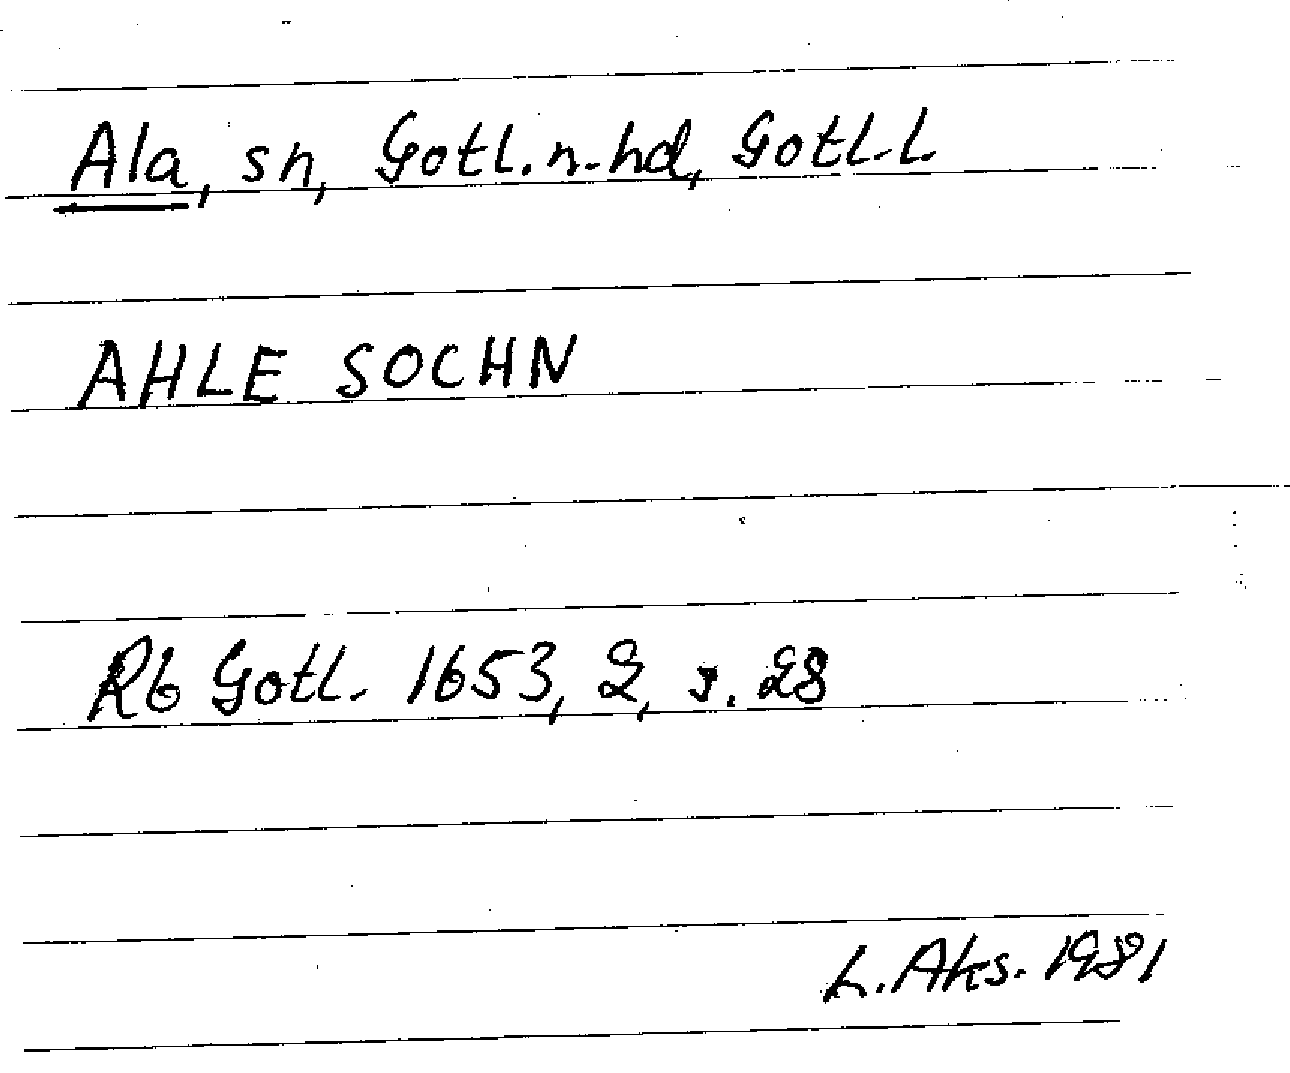 Ala, sn, Gotl. n. hd, Gotl. L.
AHLE SOCHN
Rb Gotl. 1653, 2, s. 28
L. Aks. 1981